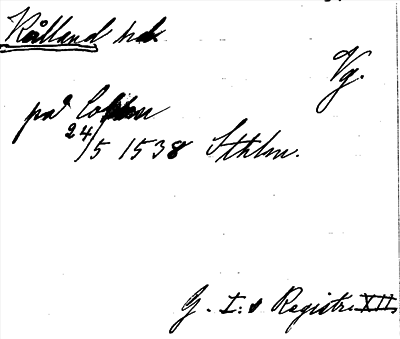 Kålland hd.
Vg.
på
24/5 1538 Sthlm.
G. I:s Registr. XII